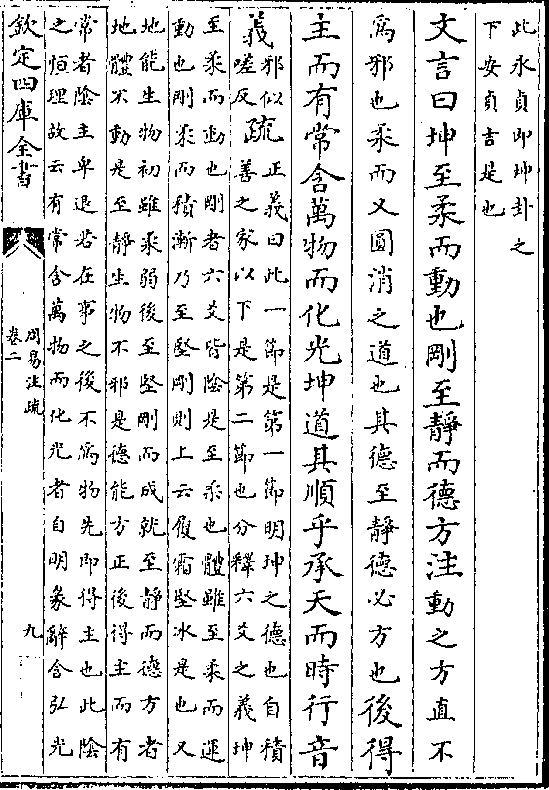 此永貞即坤卦之
下安貞吉是也
文言曰坤至柔而動也剛至靜而德方注動之方直不
爲邪也柔而又圓消之道也其德至靜德必方也後得
主而有常含萬物而化光坤道其順乎承天而時行音
義邪似
嗟反疏正義曰此一節是第一節明坤之德也自積
善之家以下是第二節也分釋六爻之義坤
至柔而動也剛者六爻皆陰是至柔也體雖至柔而運
動也剛柔而積漸乃至堅剛則上云履霜堅冰是也又
地能生物初雖柔弱後至堅剛而成就至靜而德方者
地體不動是至靜生物不邪是德能方正後得主而有
常者陰主卑退若在事之後不爲物先即得主也此陰
之恒理故云有常含萬物而化光者自明彖辭含弘光
欽定四庫全書
周易注疏
卷二
九